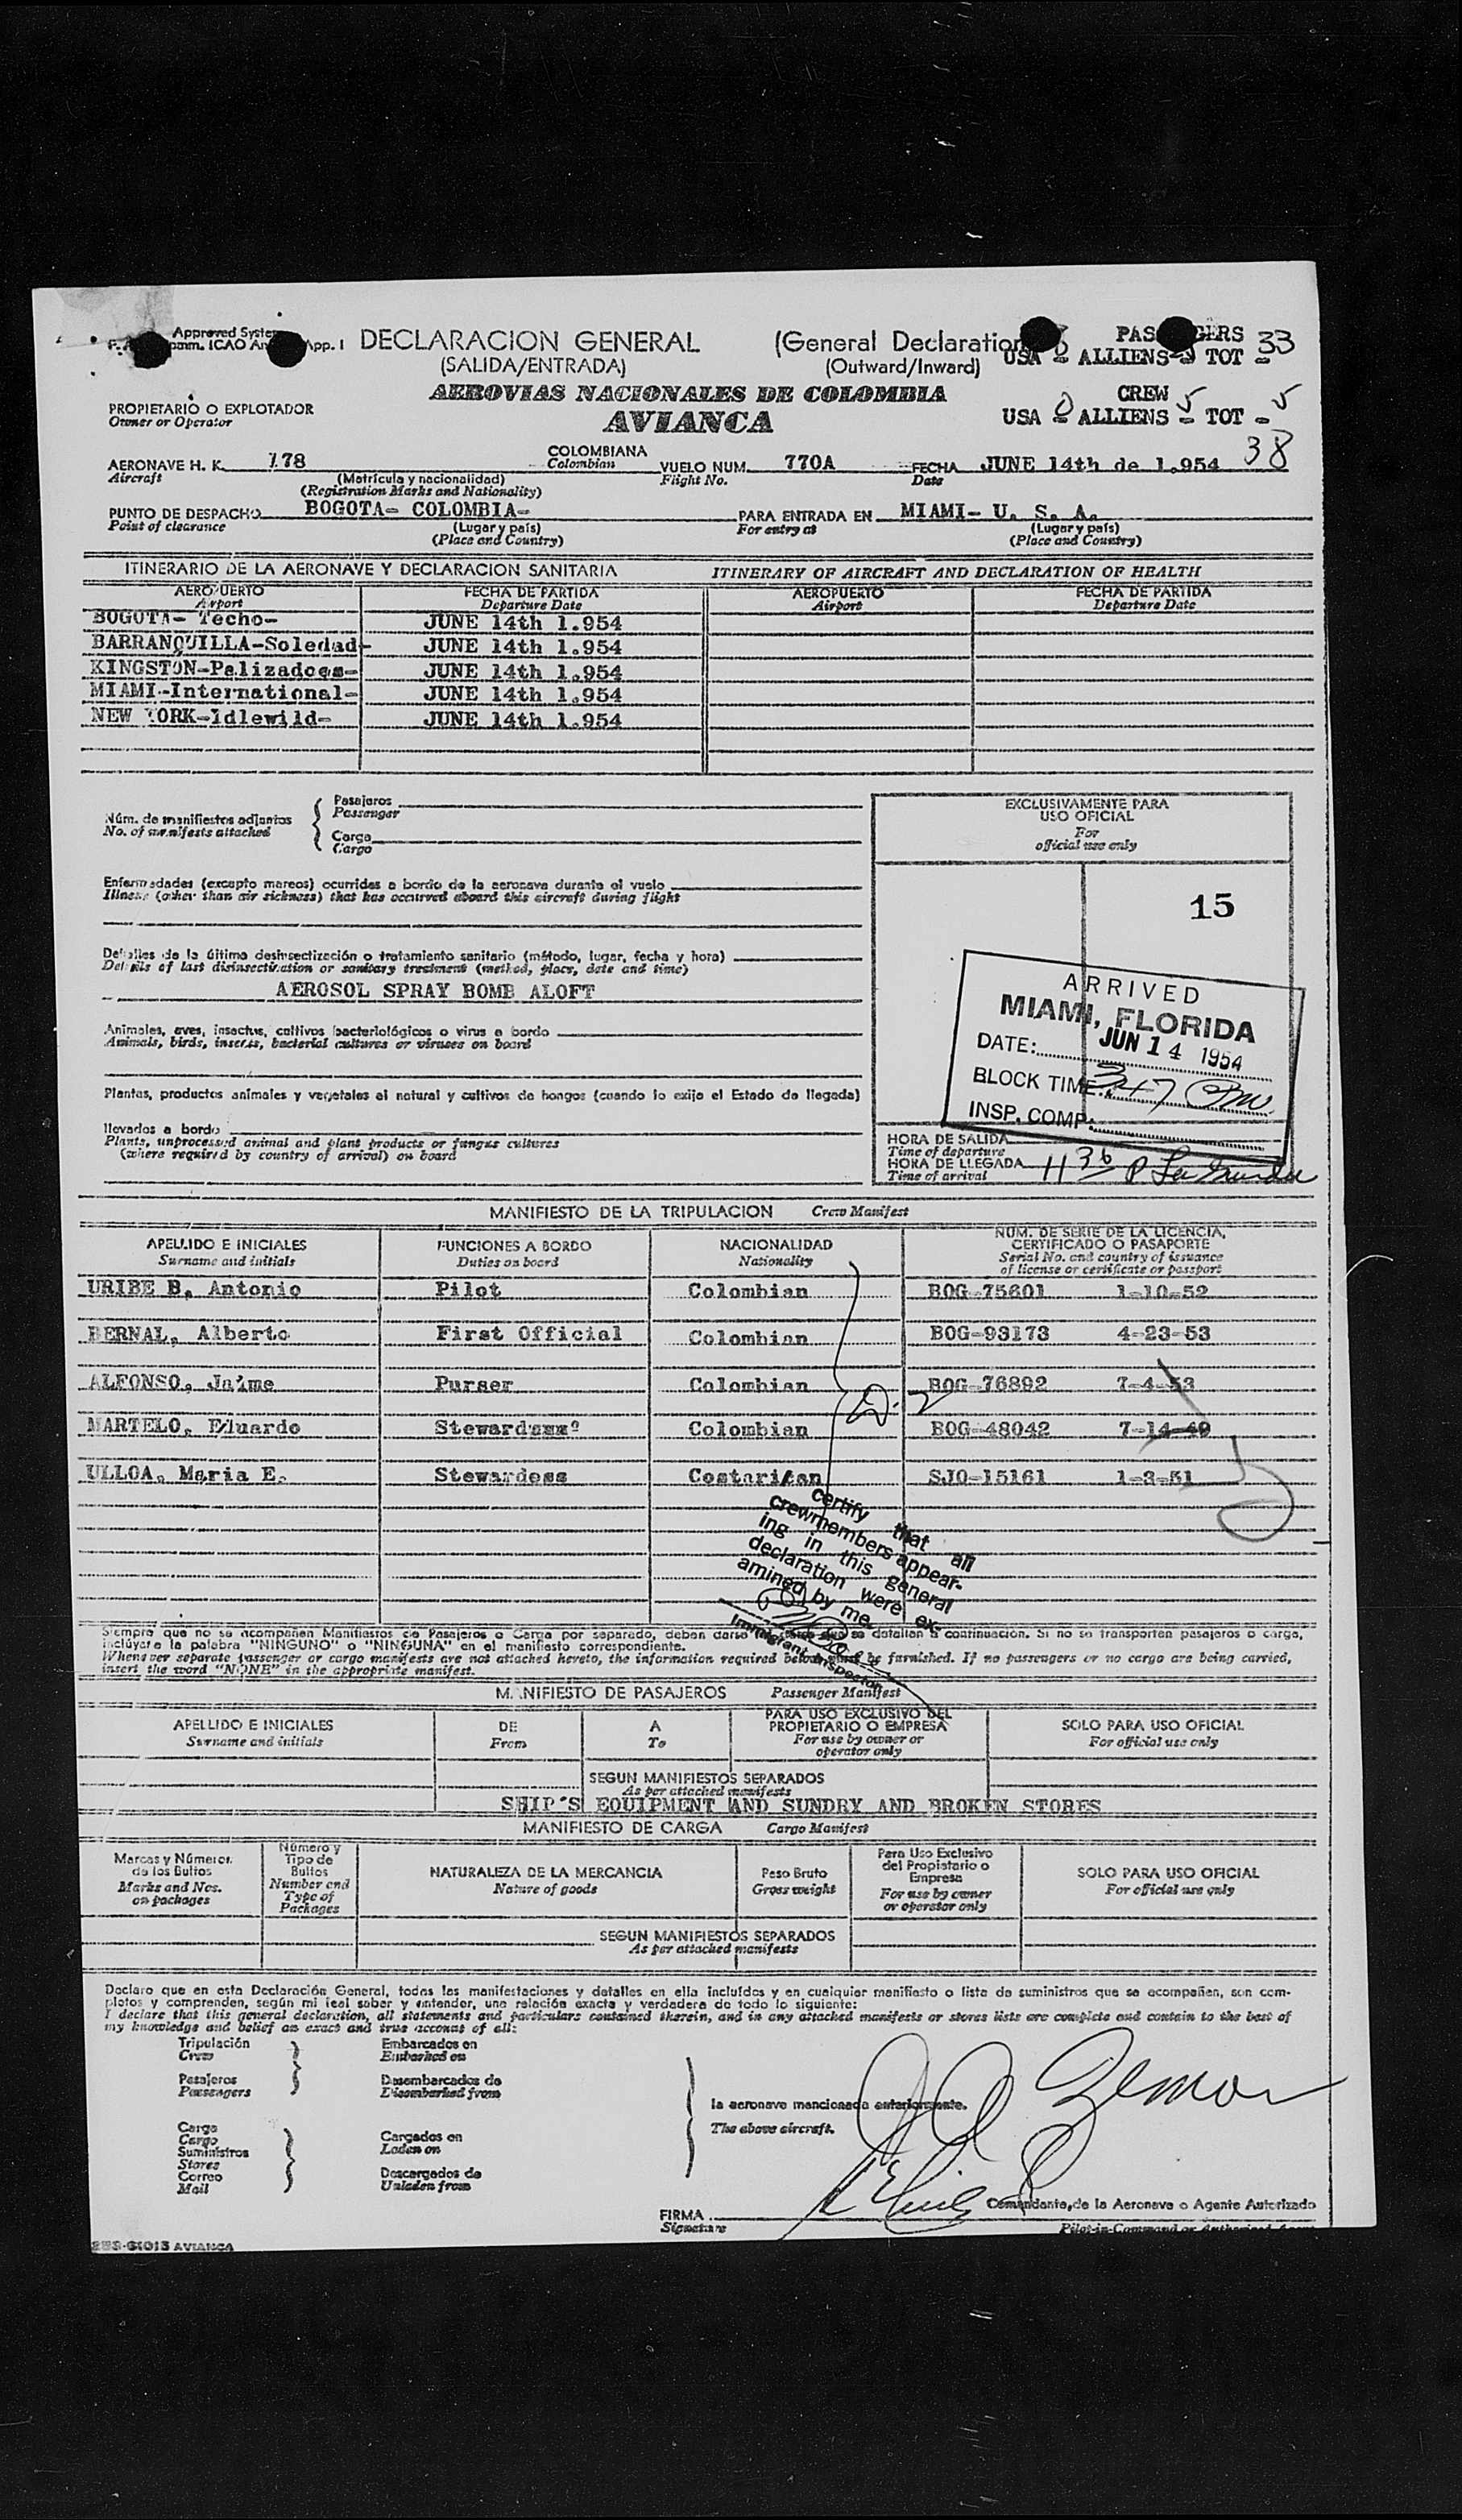 Approved System
App. I
DECLARACION GENERAL (General Declaration)
(SALIDA/ENTRADA) (Outward/Inward)
PASSENGERS
USA ALLIENS TOT 33
AEROVIAS NACIONALES DE COLOMBIA
AVIANCA
CREW
USA 0 ALLIENS 5 TOT 5
38
PROPIETARIO O EXPLOTADOR
Owner or Operator
AERONAVE H. K. 178 COLOMBIANA VUELO NUM. 770A FECHA JUNE 14th de 1.954
Aircraft Colombian Flight No. Date
(Matrícula y nacionalidad)
(Registration Marks and Nationality)
PUNTO DE DESPACHO BOGOTA- COLOMBIA- PARA ENTRADA EN MIAMI- U. S. A.
Point of clearance (Lugar y país) For entry at (Lugar y país)
(Place and Country) (Place and Country)
ITINERARIO DE LA AERONAVE Y DECLARACION SANITARIA ITINERARY OF AIRCRAFT AND DECLARATION OF HEALTH
AEROPUERTO FECHA DE PARTIDA AEROPUERTO FECHA DE PARTIDA
Airport Departure Date Airport Departure Date
BOGOTA- Techo- JUNE 14th 1.954
BARRANQUILLA-Soledad- JUNE 14th 1.954
KINGSTON-Palizadoes- JUNE 14th 1.954
MIAMI-International- JUNE 14th 1.954
NEW YORK-Idlewild- JUNE 14th 1.954
Núm. de manifiestos adjuntos
No. of manifests attached
Pasajeros
Passenger
Carga
Cargo
EXCLUSIVAMENTE PARA
USO OFICIAL
For
official use only
15
Enfermedades (excepto mareos) ocurridas a bordo de la aeronave durante el vuelo
Illness (other than air sickness) that has occurred aboard this aircraft during flight
Detalles de la última desinsectización o tratamiento sanitario (método, lugar, fecha y hora)
Details of last disinsectization or sanitary treatment (method, place, date and time)
AEROSOL SPRAY BOMB ALOFT
Animales, aves, insectos, cultivos bacteriológicos o virus a bordo
Animals, birds, insects, bacterial cultures or viruses on board
Plantas, productos animales y vegetales al natural y cultivos de hongos (cuando lo exija el Estado de llegada)
llevados a bordo
Plants, unprocessed animal and plant products or fungus cultures
(where required by country of arrival) on board
ARRIVED
MIAMI, FLORIDA
DATE: JUN 14 1954
BLOCK TIME: 347 Pm
INSP. COMP:
HORA DE SALIDA
Time of departure
HORA DE LLEGADA 11 36 P
Time of arrival
MANIFIESTO DE LA TRIPULACION Crew Manifest
APELLIDO E INICIALES FUNCIONES A BORDO NACIONALIDAD NUM. DE SERIE DE LA LICENCIA, CERTIFICADO O PASAPORTE
Surname and initials Duties on board Nationality Serial No. and country of issuance of license or certificate or passport
URIBE B, Antonio Pilot Colombian BOG-75601 1-10-52
BERNAL, Alberto First Official Colombian BOG-93173 4-23-53
ALFONSO, Jaime Purser Colombian BOG-76892 7-4-53
MARTELO, Eduardo Steward Colombian BOG-48042 7-14-49
ULLOA, Maria E. Stewardess Costarican SJO-15161 1-3-51
D-2
certify that all
crewmembers appear-
ing in this general
declaration were ex-
amined by me
Immigrant Inspector
Siempre que no se acompañen Manifiestos de Pasajeros o Carga por separado, deben darse detallan a continuación. Si no se transporten pasajeros o carga,
inclúyase la palabra "NINGUNO" o "NINGUNA" en el manifiesto correspondiente.
Whenever separate passenger or cargo manifests are not attached hereto, the information required below must be furnished. If no passengers or no cargo are being carried,
insert the word "NONE" in the appropriate manifest.
MANIFIESTO DE PASAJEROS Passenger Manifest
APELLIDO E INICIALES DE A PARA USO EXCLUSIVO DEL PROPIETARIO O EMPRESA SOLO PARA USO OFICIAL
Surname and initials From To For use by owner or operator only For official use only
SEGUN MANIFIESTOS SEPARADOS
As per attached manifests
SHIP'S EQUIPMENT AND SUNDRY AND BROKEN STORES
MANIFIESTO DE CARGA Cargo Manifest
Marcas y Números de los Bultos Número y Tipo de Bultos NATURALEZA DE LA MERCANCIA Peso Bruto Para Uso Exclusivo del Propietario o Empresa SOLO PARA USO OFICIAL
Marks and Nos. on packages Number and Type of Packages Nature of goods Gross weight For use by owner or operator only For official use only
SEGUN MANIFIESTOS SEPARADOS
As per attached manifests
Declaro que en esta Declaración General, todas las manifestaciones y detalles en ella incluídos y en cualquier manifiesto o lista de suministros que se acompañen, son com-
pletos y comprenden, según mi leal saber y entender, una relación exacta y verdadera de todo lo siguiente:
I declare that this general declaration, all statements and particulars contained therein, and in any attached manifests or stores lists are complete and contain to the best of
my knowledge and belief an exact and true account of all:
Tripulación Embarcados en
Crew Embarked on
Pasajeros Desembarcados de
Passengers Disembarked from
la aeronave mencionada anteriormente.
The above aircraft.
Carga
Cargo Cargados en
Suministros Laden on
Stores
Correo Descargados de
Mail Unladen from
FIRMA Comandante, de la Aeronave o Agente Autorizado
Signature Pilot-in-Command or Authorized Agent
AVIANCA